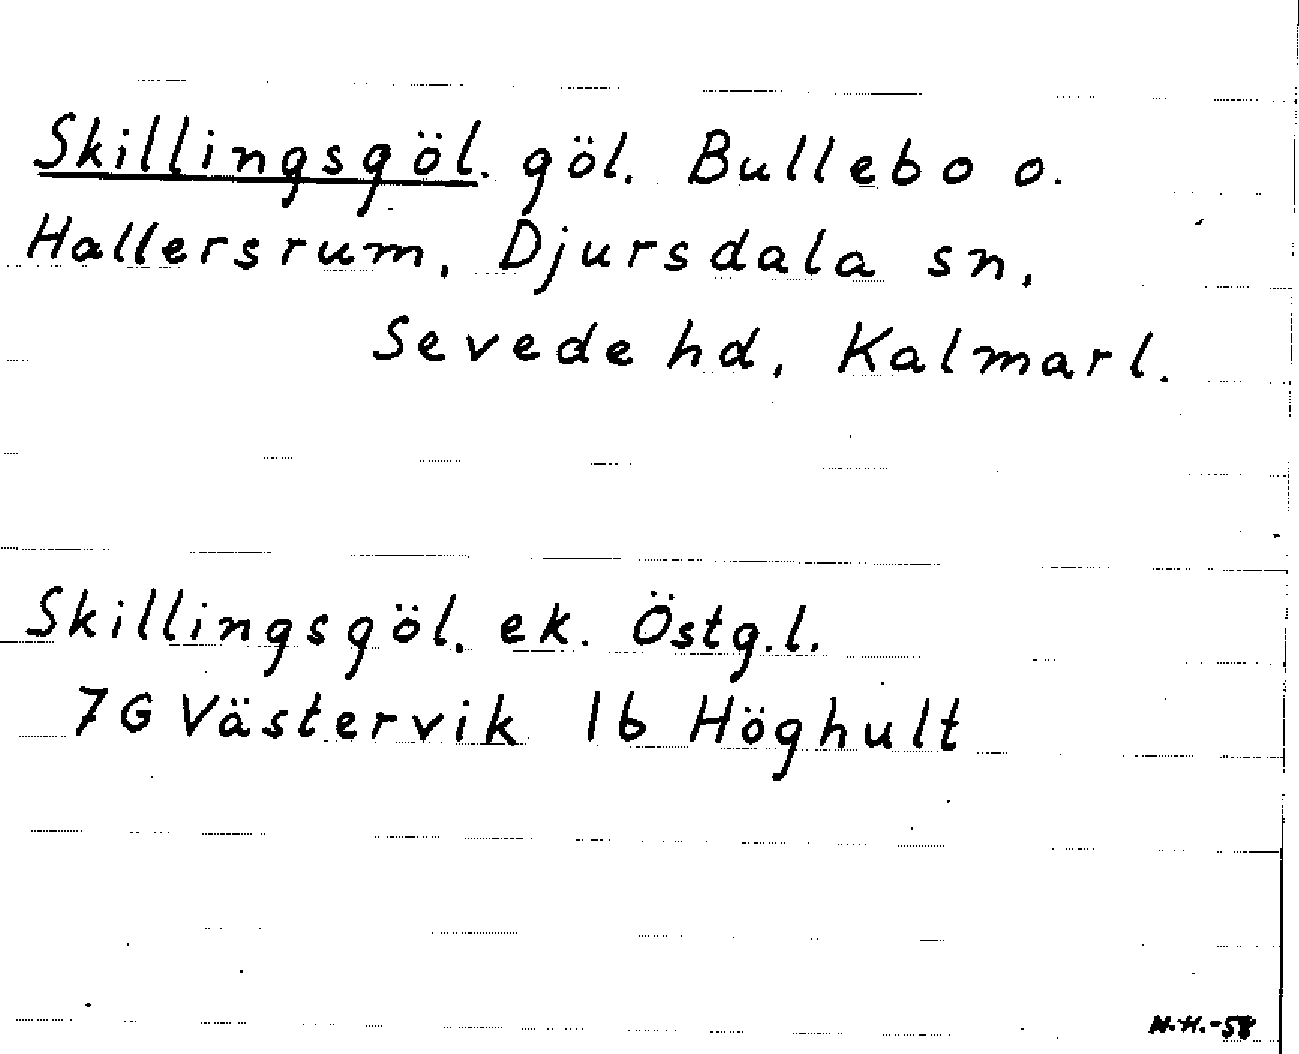 Skillingsgöl. göl. Bullebo o.
Hallersrum, Djursdala sn,
Sevede hd, Kalmar l.
Skillingsgöl. ek. Östg.l.
7G Västervik 1b Höghult
N.H.-58